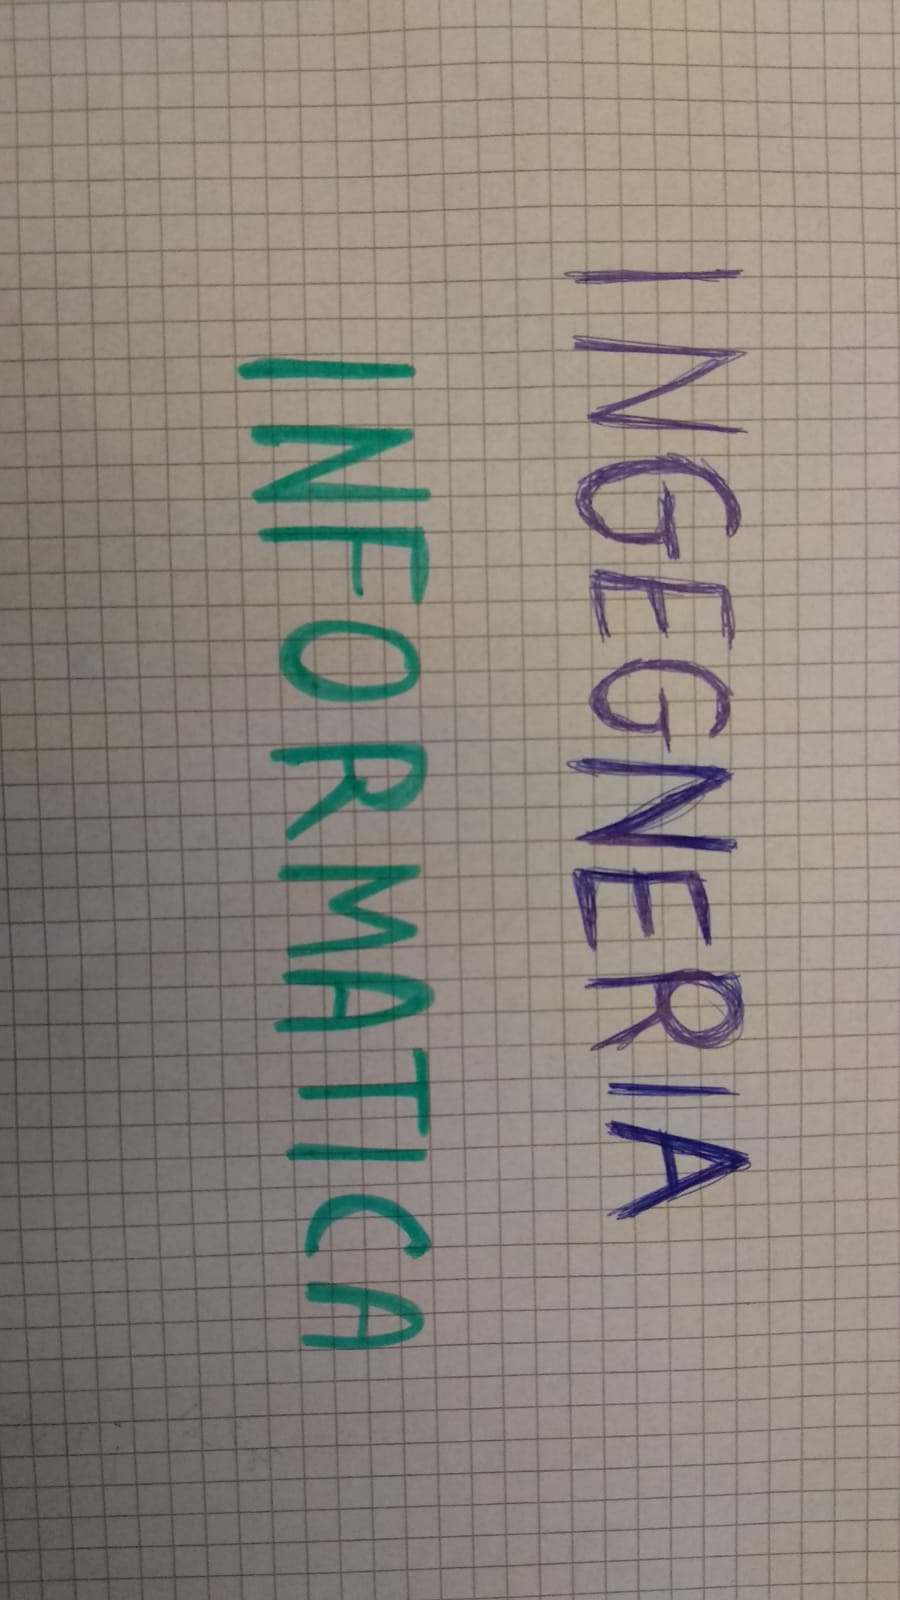 INGEGNERIA
INFORMATICA